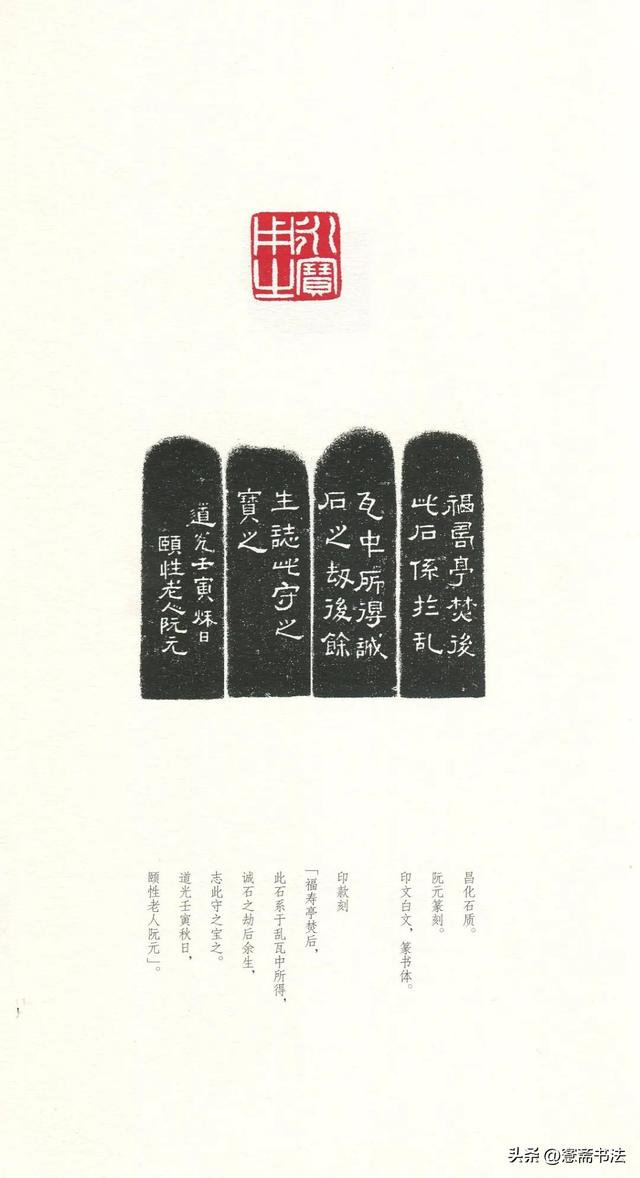 永寶
用之
福壽亭焚後
此石係扵乱
瓦中所得誠
石之刼後餘
生誌此守之
寶之
道光壬寅秌日
頤性老人阮元
昌化石质。
阮元篆刻。
印文白文，篆书体。
印款刻
「福寿亭焚后，
此石系于乱瓦中所得，
诚石之劫后余生，
志此守之宝之。
道光壬寅秋日，
颐性老人阮元」。
头条 @愙斋书法